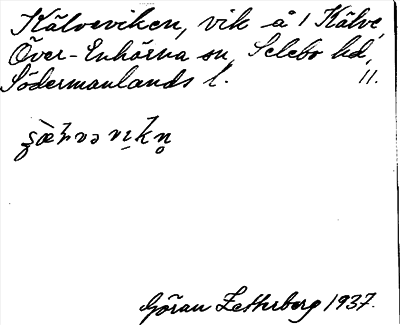 Kälveviken, vik å 1 Kälve,
Över-Enhörna sn, Selebo hd,
Södermanlands l. 11.
Göran Zetterberg 1937.